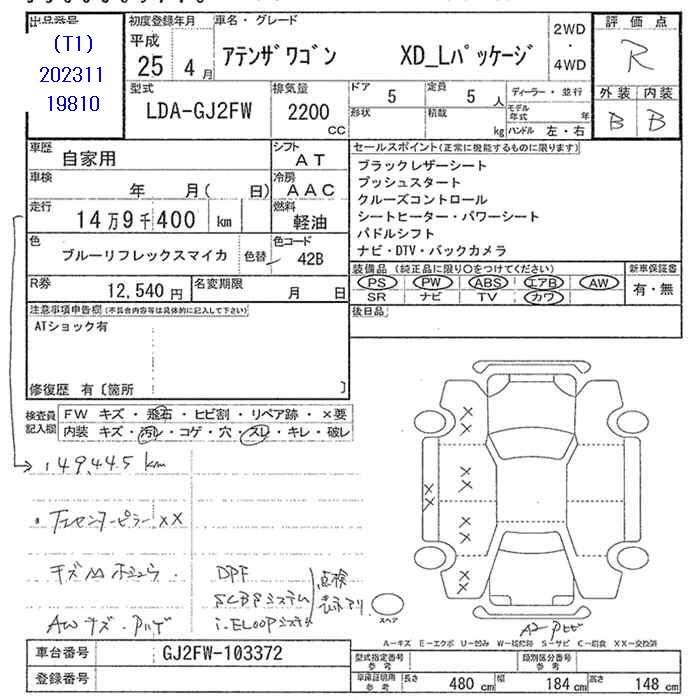 出品番号
(T1)
202311
19810
初度登録年月
平成
25 4月
車名・グレード
アテンザワゴン XD_Lパッケージ
2WD
・
4WD
評価点
R
外装 内装
B B
型式
LDA-GJ2FW
排気量
2200
CC
ドア 5
定員 5 人
形状
積載 kg
ディーラー・並行
モデル年式 年
ハンドル 左・右
車歴
自家用
シフト
AT
車検
年 月( 日)
冷房
AAC
走行
14万9千400 km
燃料
軽油
色
ブルーリフレックスマイカ
色替
色コード
42B
R券
12,540 円
名変期限
月 日
セールスポイント(正常に機能するものに限ります)
ブラックレザーシート
プッシュスタート
クルーズコントロール
シートヒーター・パワーシート
パドルシフト
ナビ・DTV・バックカメラ
装備品 (純正品に限り○をつけてください)
PS PW ABS エアB AW
SR ナビ TV カワ
新車保証書
有・無
後日品
注意事項申告欄(不具合内容等は具体的に記入して下さい)
ATショック有
修復歴 有〔箇所 〕
検査員
記入欄
FW キズ・飛石・ヒビ割・リペア跡・×要
内装 キズ・汚レ・コゲ・穴・スレ・キレ・破レ
149,445 km
センターピラー XX
キズ
DPF
SCBSシステム
i-ELOOPシステム
点検
表示アリ
AWキズ・
スペア
A2
A-キズ E-エクボ U-凹み W-補修跡 S-サビ C-腐食 XX-交換済
車台番号
GJ2FW-103372
登録番号
型式指定番号
参考
類別区分番号
参考
車庫証明用
参考
長さ 480 cm
幅 184 cm
高さ 148 cm